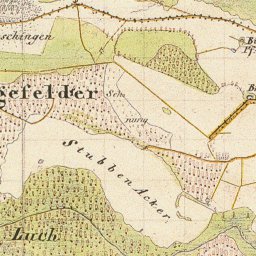 schingen
gefelder
nung
Stubben Acker
Luch